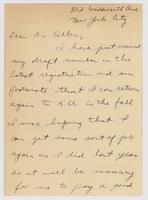 Wadsworth Ave
New York City
Dear Dr. Allen,
I have just received
my draft number in the
latest registration and am
fortunate that I can return
again to KU in the fall.
I was hoping that I
can get some sort of job
again as I did last year
as it will be necessary
for me to pay a good